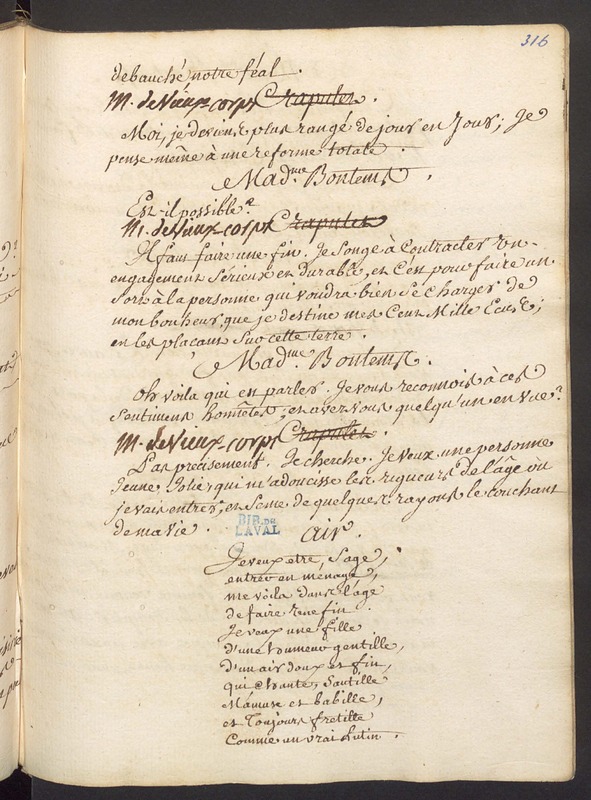 316
debauché notre féal.
M. de Vieux-corps Crapulet.
Moi, je deviens plus rangé de jour en Jour; Je
pense même à une reforme totale.
Mad.me Bontems.
Est-il possible?
M. de Vieux-corps Crapulet
Il faut faire une fin. Je songe à Contracter un
engagement Sérieux et durable, et C'est pour faire un
Sort à la personne qui voudra bien Se Charger de
mon bonheur, que je destine mes Cent Mille Ecus;
en les placant Sur cette terre.
Mad.me Bontems.
Oh voila qui est parler. Je vous reconnois à ces
Sentimens honnêtes; en avez vous quelqu'un en vue?
M. de Vieux-corps Crapulet.
Pas precisement. Je cherche. Je veux une personne
Jeune, Jolie, qui m'adoucisse les rigueurs de l'âge où
je vais entrer, et Seme de quelques rayons le couchant
de ma vie.
BIB. DE
LAVAL
air.
Je veux etre, Sage,
entrer en ménage,
me voila dans l'âge
de faire une fin.
Je veux une fille
d'une humeur gentille,
d'un air doux et fin,
qui chante, Sautille
M'amuse et babille,
et Toujours fretille
Comme un vrai Lutin.